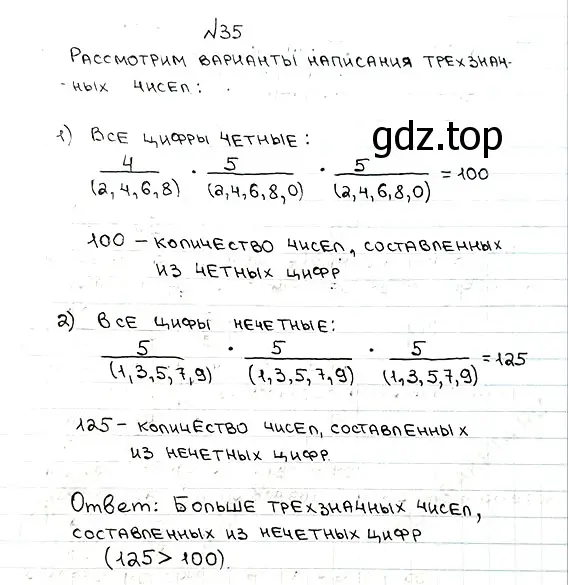 №35
Рассмотрим варианты написания трехзнач-
-ных чисел:
1) Все цифры четные:
gdz.top
4/(2,4,6,8) · 5/(2,4,6,8,0) · 5/(2,4,6,8,0) = 100
100 – количество чисел, составленных
из четных цифр
2) Все цифры нечетные:
5/(1,3,5,7,9) · 5/(1,3,5,7,9) · 5/(1,3,5,7,9) = 125
125 – количество чисел, составленных
из нечетных цифр.
Ответ: Больше трехзначных чисел,
составленных из нечетных цифр
(125 > 100).